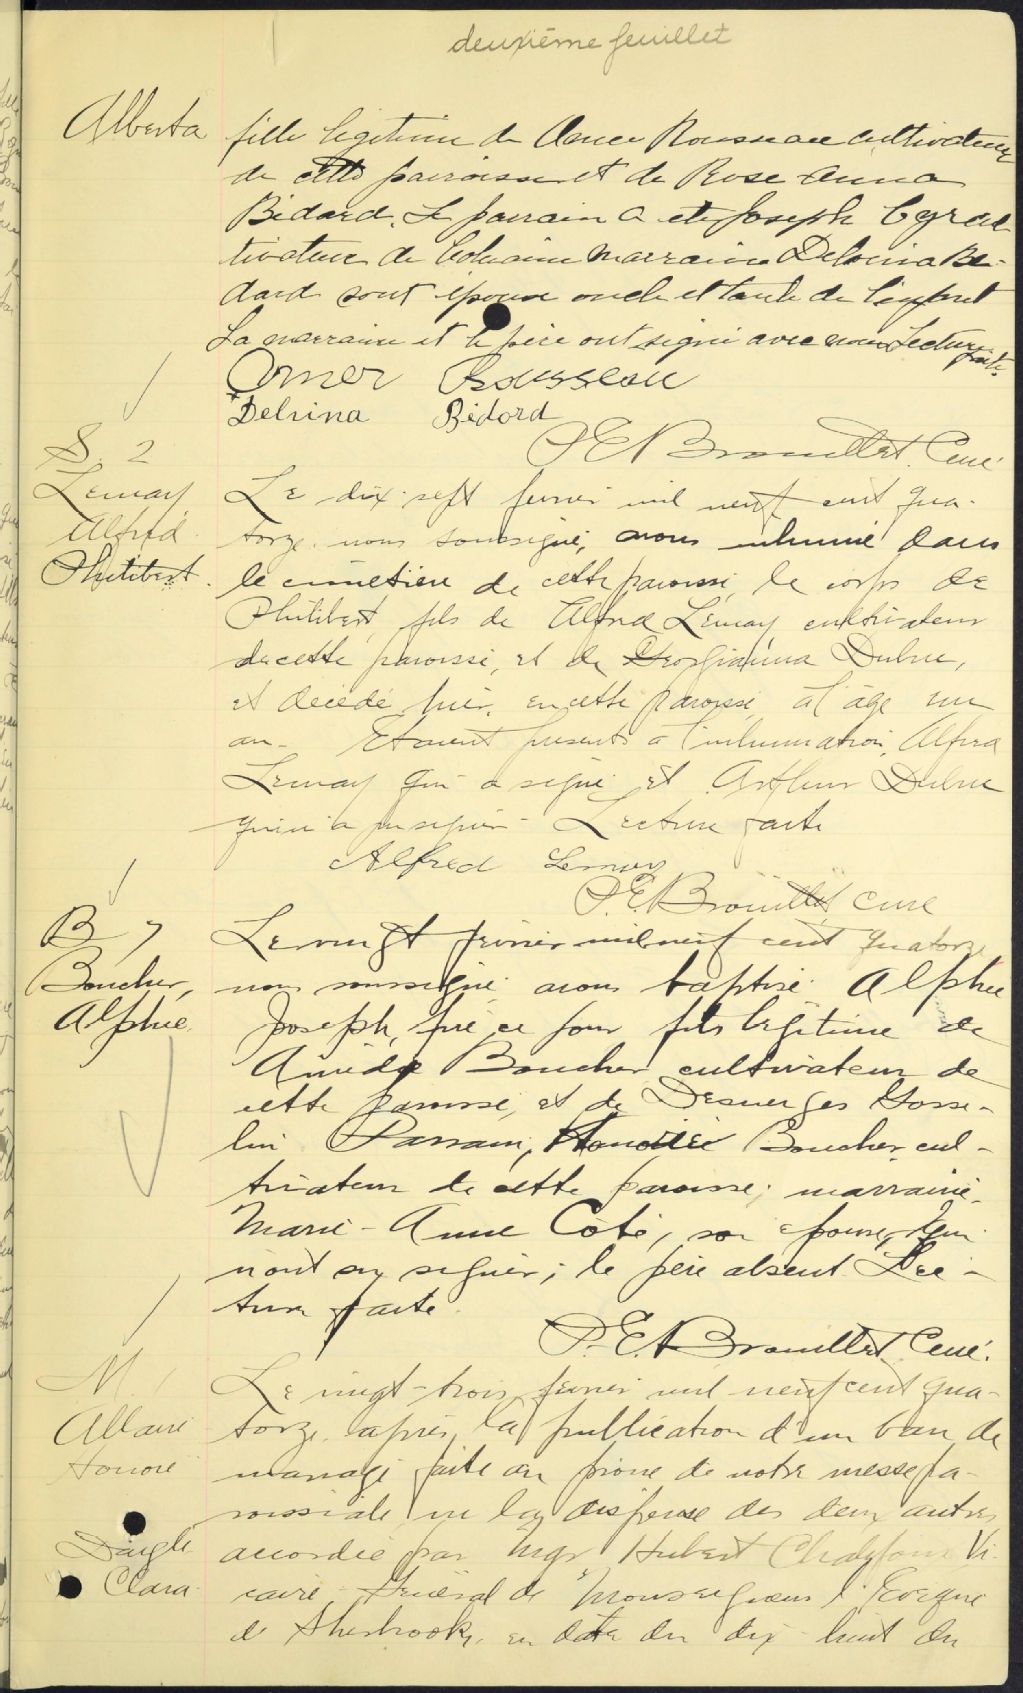 deuxième feuillet
Alberta
fille légitime de Omer Rousseau cultivateur
de cette paroisse et de Rose Anna
Bédard. Le parrain a été Joseph Cyr cul-
tivateur de marraine Delvina Bé-
dard sont épouse oncle et tante de l'enfant
La marraine et le père ont signé avec nous Lecture faite.
Omer Rousseau
Delvina Bédard
P.E.A Brouillet. Curé
S. 2
Lemay
Alfred
Philibert.
Le dix-sept février mil neuf cent qua-
torze nous soussigné, avons inhumé dans
le cimetière de cette paroisse, le corps de
Philibert, fils de Alfred Lemay cultivateur
de cette paroisse, et de Georgianna Dubuc,
et décédé hier, en cette paroisse, à l'âge un
an. Étaient présents à l'inhumation, Alfred
Lemay qui a signé et Arthur Dubuc
qui n'a pu signer - Lecture faite
Alfred Lemay
P.E.A Brouillet curé
B 7
Boucher,
Alphée
Le vingt février mil neuf cent quatorze
nous soussigné avons baptisé Alphée
Joseph, né ce jour fils légitime de
Amédé Boucher cultivateur de
cette paroisse, et de Desneiges Gosse-
lin Parrain, Honoré Boucher, cul-
tivateur de cette paroisse; marraine,
Marie-Anne Coté, son épouse, qui
n'ont su signer; le père absent. Lec-
ture faite
P.E.A Brouillet. Curé.
M. 1
Allaire
Honoré
Daigle
Clara
Le vingt-trois février mil neuf cent qua-
torze, après la publication d'un ban de
mariage faite au prône de notre messe pa-
roissiale, vu la dispense des deux autres
accordée par Mgr Hubert Chalifoux Vi-
caire Général de Monseigneur l'Évêque
de Sherbrooke, en date du dix-huit du